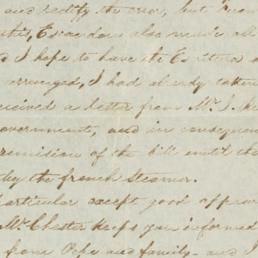 and rectify the error, but
Ecuador also
I hope to have the
arranged, I had already taken
received a letter from Mr. J.
government, and in consequen
remission of the bill until the
by the french steamer.
particular except good
Mr. Chester keeps you informed
from Pope and family - and I